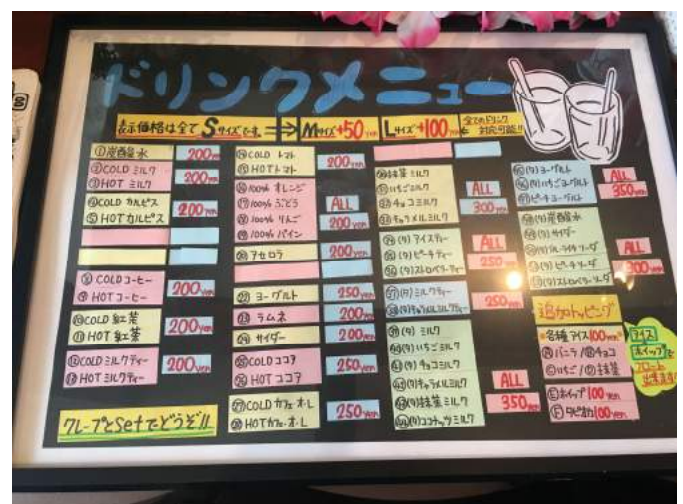 ドリンクメニュー
表示価格は全てSサイズです。⇒ Mサイズ+50yen Lサイズ+100yen ← 全てのドリンク対応可能!!
①炭酸水 200yen
②COLD ミルク
③HOT ミルク 200yen
④COLD カルピス
⑤HOTカルピス 200yen
⑧COLDコーヒー
⑨HOTコーヒー 200yen
⑩COLD 紅茶
⑪HOT 紅茶 200yen
⑫COLDミルクティー
⑬HOT ミルクティー 200yen
クレープとSetでどうぞ!!
⑭COLD トマト
⑮HOTトマト 200yen
⑯100% オレンジ
⑰100% ぶどう
⑱100% りんご
⑲100% パイン
ALL 200yen
⑳アセロラ 200yen
㉒ヨーグルト 250yen
㉓ラムネ 200yen
㉔サイダー 200yen
㉕COLDココア
㉖HOT ココア 250yen
㉗COLD カフェ・オ・レ
㉘HOTカフェ・オ・レ 250yen
抹茶ミルク
いちごミルク
チョコミルク
キャラメルミルク
ALL 300yen
(タ)アイスティー
(タ)ピーチティー
(タ)ストロベリーティー
ALL 250yen
(タ)ミルクティー
(タ)キャラメルミルクティー
250yen
(タ)ミルク
(タ)いちごミルク
(タ)チョコミルク
(タ)キャラメルミルク
(タ)抹茶ミルク
(タ)ココナッツミルク
ALL 350yen
(タ)ヨーグルト
(タ)いちごヨーグルト
ピーチヨーグルト
ALL 350yen
(タ)炭酸水
(タ)サイダー
(タ)ピーチソーダ
(タ)ストロベリーソーダ
ALL 300yen
追加トッピング
各種アイス100yen
Ⓐバニラ/Ⓑチョコ
Ⓒいちご/Ⓓ抹茶
Ⓔホイップ100yen
Ⓕタピオカ100yen
アイス
ホイップを
フロート
出来ます!